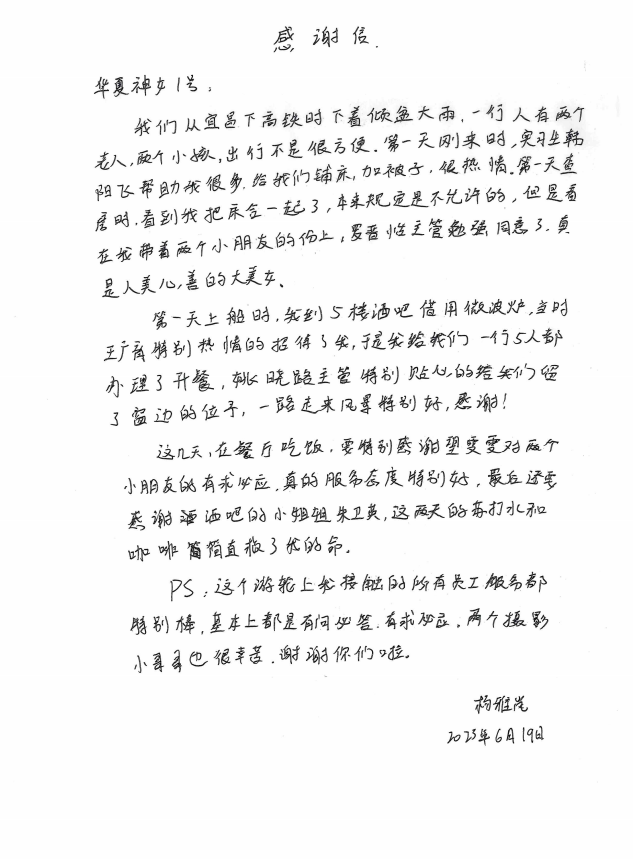 感谢信.
华夏神女1号:
我们从宜昌下高铁时下着倾盆大雨,一行人有两个
老人,两个小孩,出行不是很方便.第一天刚来时,实习生韩
阳飞帮助我很多.给我们铺床,加被子,很热情.第一天查
房时.看到我把床合一起了,本来规定是不允许的,但是看
在我带着两个小朋友的份上,罗晋怡主管勉强同意了.真
是人美心善的大美女.
第一天上船时,我到5楼酒吧借用微波炉,当时
王广彦特别热情的招待了我,于是我给我们一行5人都
办理了升餐,姚晓路主管特别贴心的给我们留
了窗边的位子,一路走来风景特别好,感谢!
这几天,在餐厅吃饭,要特别感谢望雯雯对两个
小朋友的有求必应,真的服务态度特别好,最后还要
感谢酒吧的小姐姐朱卫英,这两天的苏打水和
咖啡简直救了我的命.
PS:这个游轮上我接触的所有员工服务都
特别棒,基本上都是有问必答.有求必应,两个摄影
小哥哥也很辛苦.谢谢你们啦.
杨雅
2025年6月19日